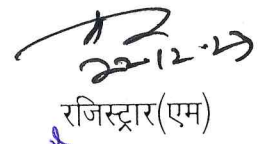 22.12.23
रजिस्ट्रार(एम)